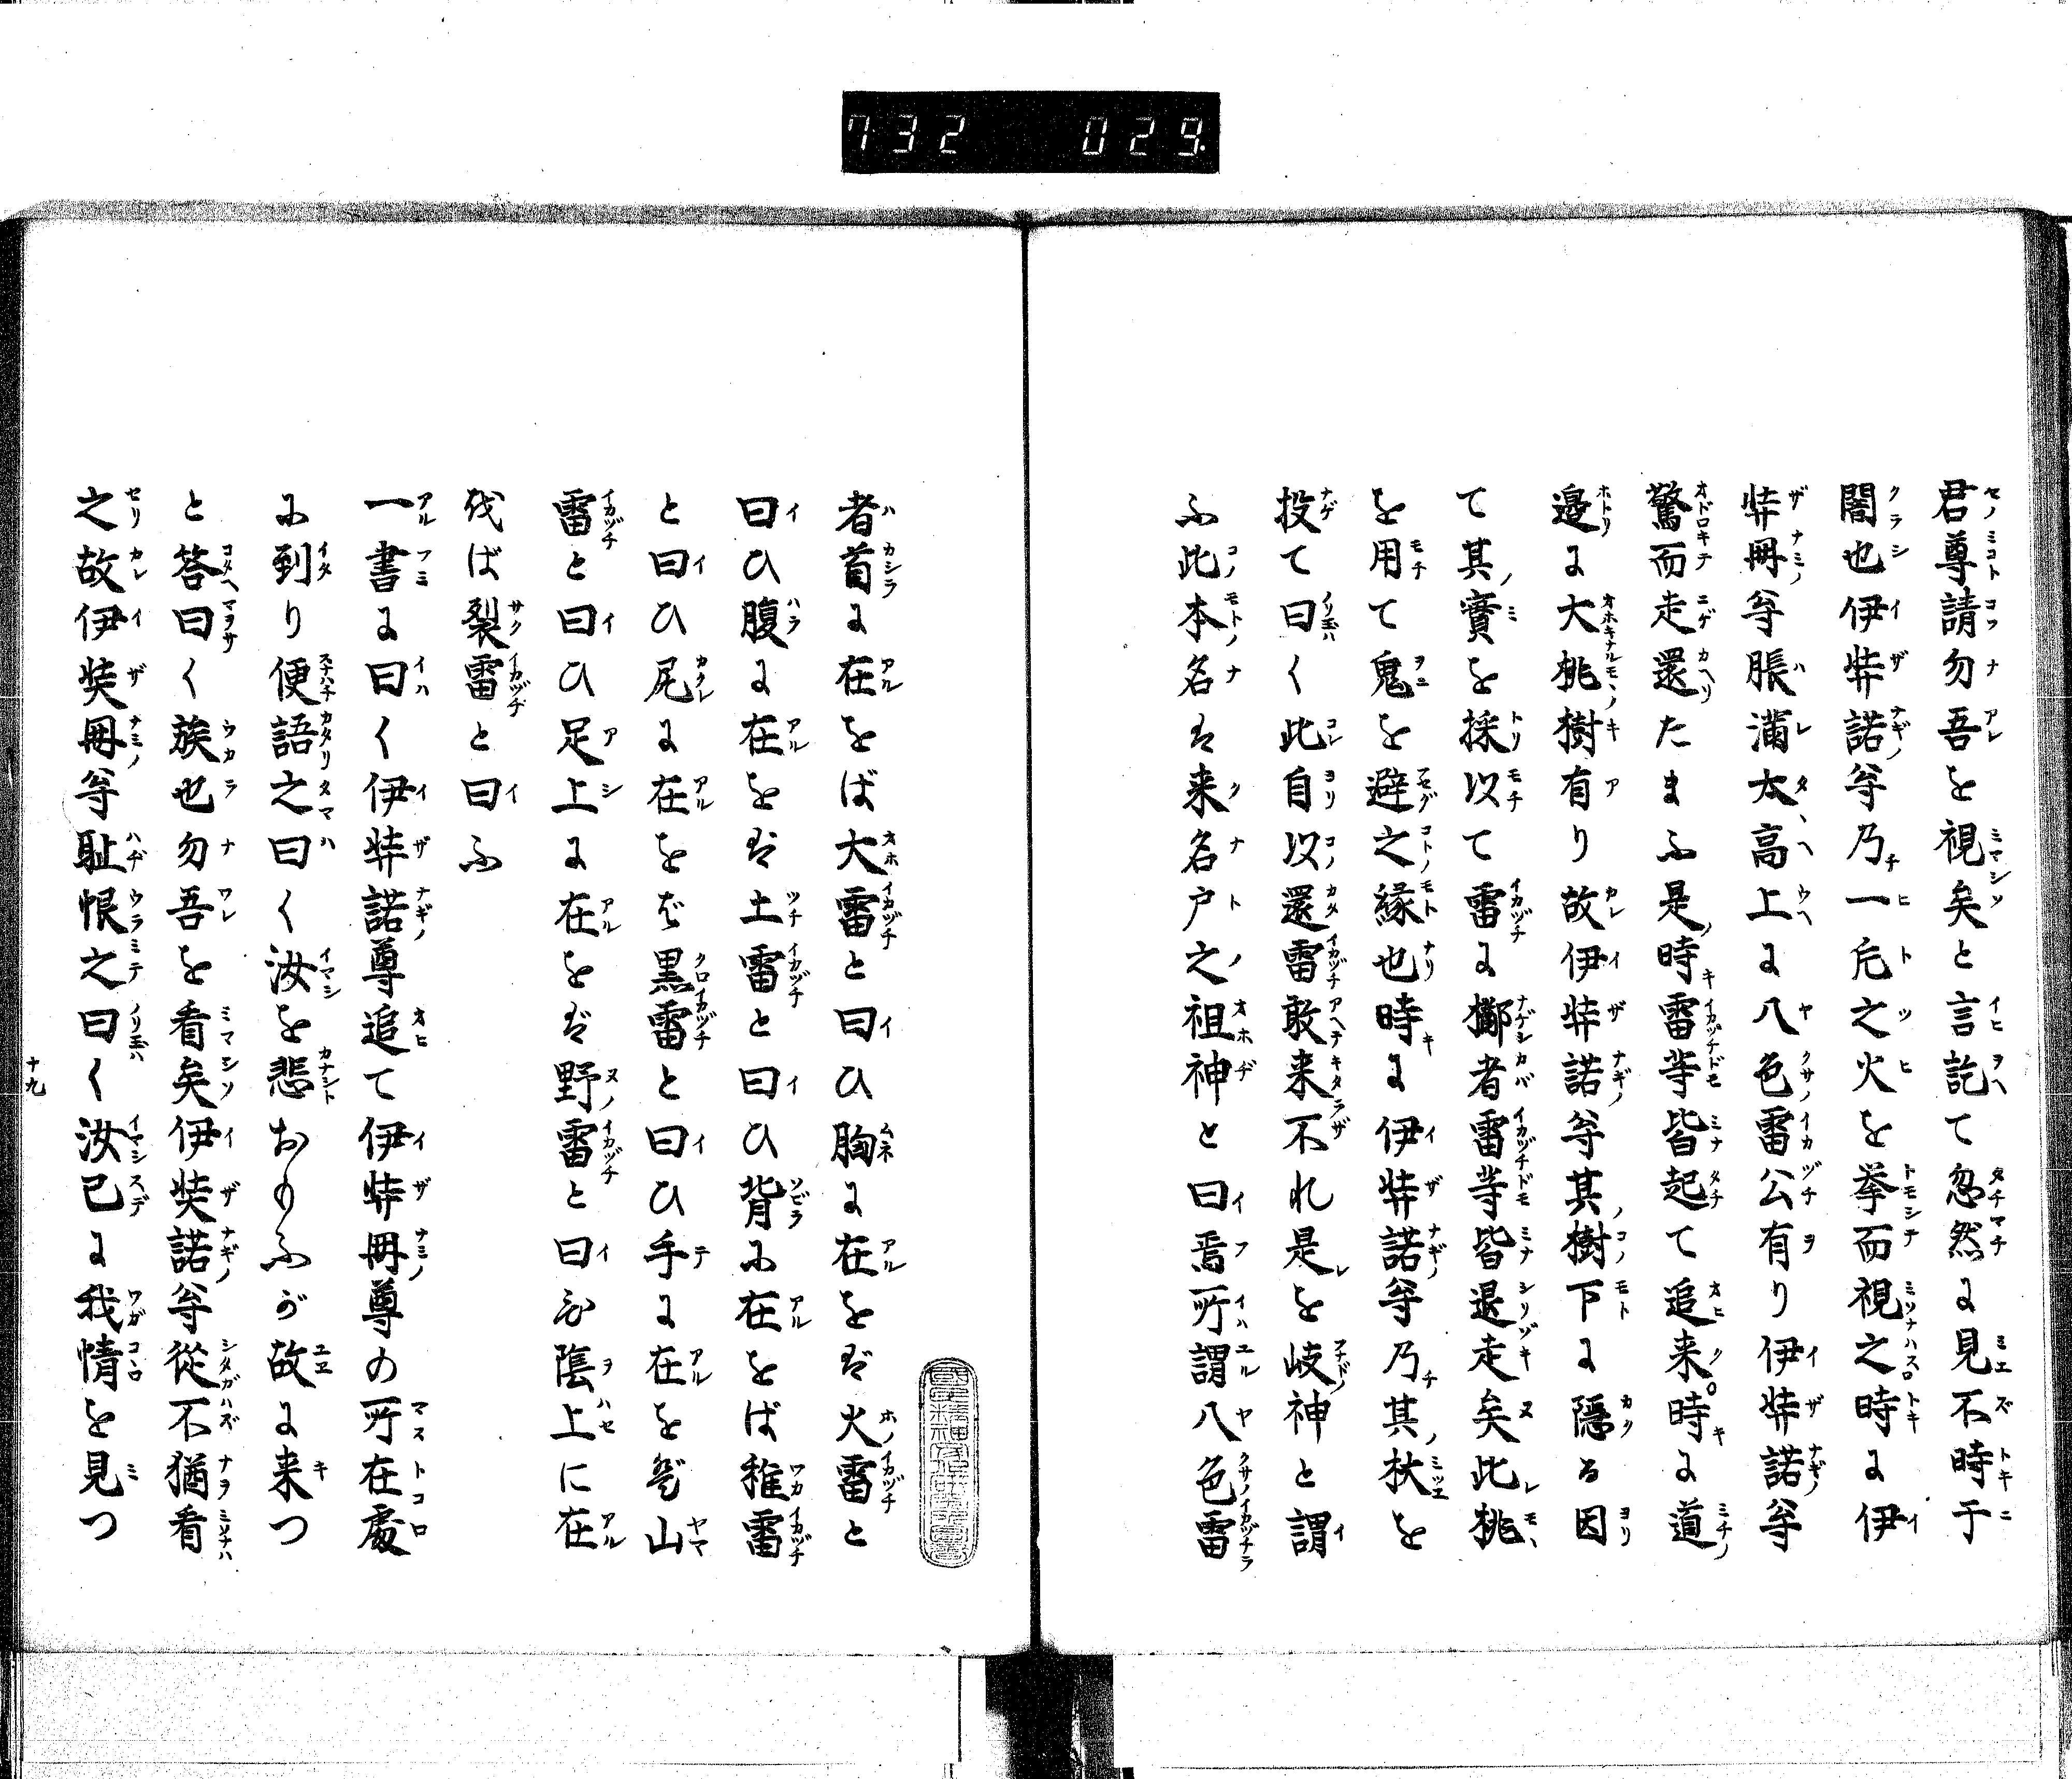 732 029
君尊請勿吾を視矣と言訖て忽然に見不時于
闇也伊弉諾尊乃一片之火を挙而視之時に伊
弉冊尊脹満太高上に八色雷公有り伊弉諾尊
驚而走還たまふ是時雷等皆起て追来。時に道
邉に大桃樹有り故伊弉諾尊其樹下に隠る因
て其實を採以て雷に擲者雷等皆退走矣此桃
を用て鬼を避之縁也時に伊弉諾尊乃其杖を
投て曰く此自以還雷敢来不れ是を岐神と謂
ふ此本名は来名戸之祖神と曰焉所謂八色雷
者首に在をば大雷と曰ひ胸に在をば火雷と
曰ひ腹に在をば土雷と曰ひ背に在をば稚雷
と曰ひ尻に在をば黒雷と曰ひ手に在をば山
雷と曰ひ足上に在をば野雷と曰ひ陰上に在
をば裂雷と曰ふ
一書に曰く伊弉諾尊追て伊弉冊尊の所在處
に到り便語之曰く汝を悲おもふが故に来つ
と答曰く族也勿吾を看矣伊奘諾尊從不猶看
之故伊奘冊尊耻恨之曰く汝已に我情を見つ
十九